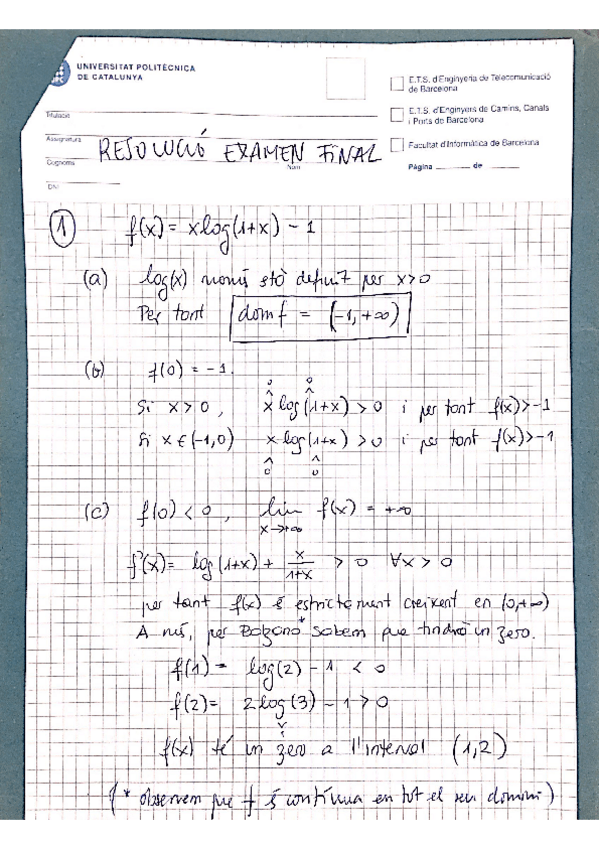 UNIVERSITAT POLITÈCNICA
DE CATALUNYA
E.T.S. d'Enginyeria de Telecomunicació
de Barcelona
E.T.S. d'Enginyers de Camins, Canals
i Ports de Barcelona
Facultat d'Informàtica de Barcelona
Titulació
Assignatura
Cognoms
Nom
DNI
Pàgina de
RESOLUCIÓ EXAMEN FINAL
1 f(x) = x log(1+x) - 1
(a) log(x) només està definit per x>0
Per tant dom f = (-1, +∞)
(b) f(0) = -1.
0 0
^ ^
Si x>0, x log(1+x) > 0 i per tant f(x)>-1
Si x ∈ (-1,0) x log(1+x) > 0 i per tant f(x)>-1
^ ^
0 0
(c) f(0) < 0, lim f(x) = +∞
x→+∞
f'(x) = log(1+x) + x/(1+x) > 0 ∀x > 0
per tant f(x) é estrictament creixent en (0,+∞)
A més, per Bolzano* sabem que tindrà un zero.
f(1) = log(2) - 1 < 0
f(2) = 2 log(3) - 1 > 0
f(x) té un zero a l'interval (1,2)
(* observem que f és contínua en tot el seu domini)